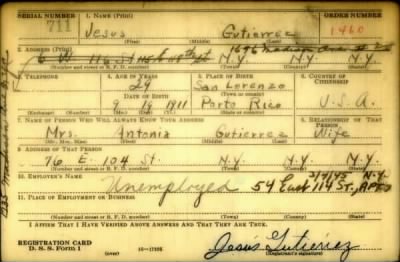 SERIAL NUMBER 1. NAME (Print) ORDER NUMBER
711 Jesus Gutierrez 1460
(First) (Middle) (Last)
2. ADDRESS (Print) 1696 Madison Ave
N.Y. N.Y. N.Y.
(Number and street or R. F. D. number) (Town) (County) (State)
3. TELEPHONE 4. AGE IN YEARS 5. PLACE OF BIRTH 6. COUNTRY OF CITIZENSHIP
29 San Lorenzo
DATE OF BIRTH (Town or county)
9 19 1911 Porto Rico U.S.A.
(Exchange) (Number) (Mo.) (Day) (Yr.) (State or country)
7. NAME OF PERSON WHO WILL ALWAYS KNOW YOUR ADDRESS RELATIONSHIP OF THAT PERSON
Mrs. Antonia Gutierrez Wife
(Mr., Mrs., Miss) (First) (Middle) (Last)
8. ADDRESS OF THAT PERSON
76 E. 104 St. N.Y. N.Y. N.Y.
(Number and street or R. F. D. number) (Town) (County) (State)
10. EMPLOYER'S NAME N.Y.
Unemployed 54 East 114 St.,
11. PLACE OF EMPLOYMENT OR BUSINESS
(Number and street or R. F. D. number) (Town) (County) (State)
I AFFIRM THAT I HAVE VERIFIED ABOVE ANSWERS AND THAT THEY ARE TRUE.
REGISTRATION CARD
D. S. S. Form 1 (over) Jesús Gutierrez
(Registrant's signature)